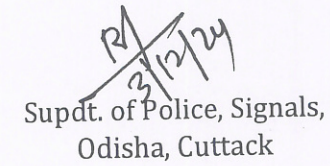 3/12/24
Supdt. of Police, Signals,
Odisha, Cuttack